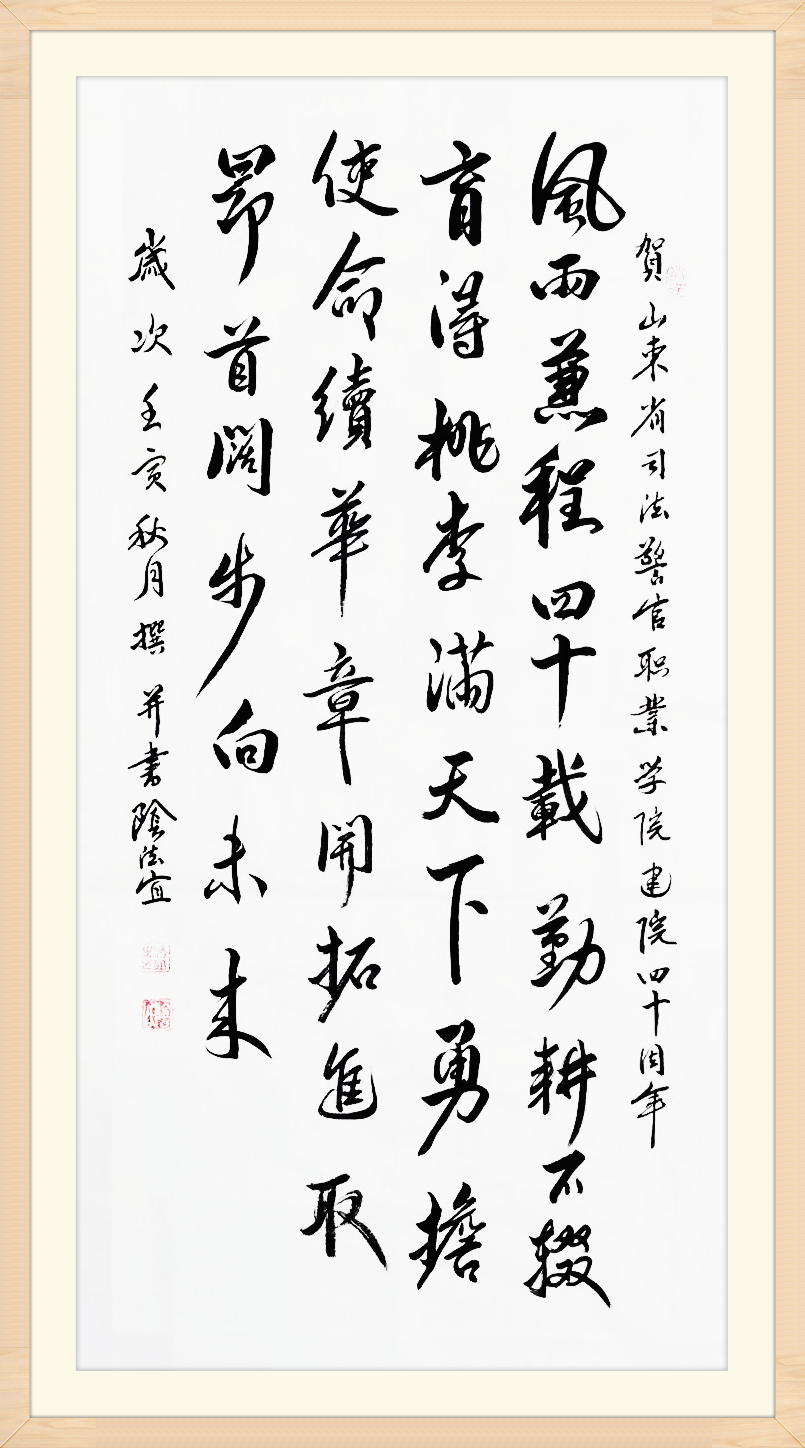 賀山東省司法警官职業学院建院四十周年
風雨兼程四十載勤耕不辍
育得桃李滿天下勇擔
使命續華章開拓進取
昂首闊步向未来
歲次壬寅秋月撰并書陰法宜